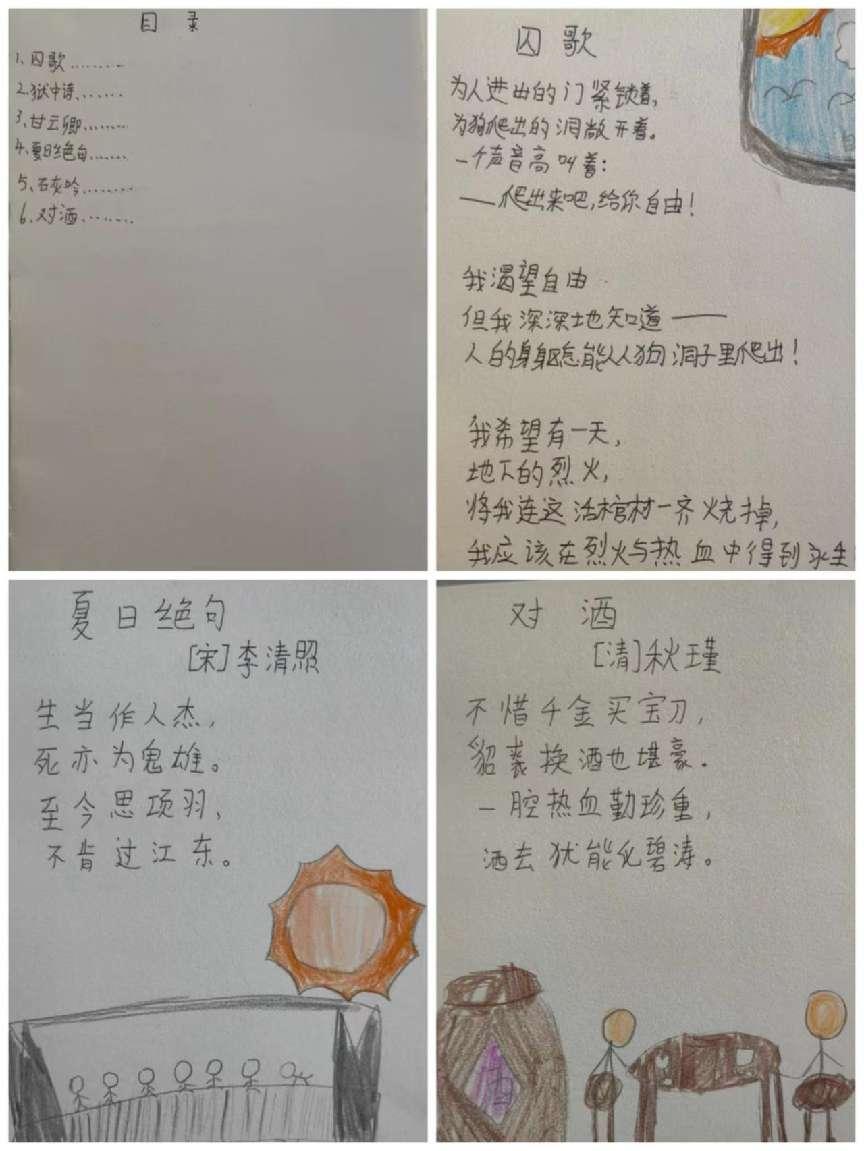 目录
1、囚歌………
2、狱中诗………
3、甘云卿………
4、夏日绝句………
5、石灰吟………
6、对酒………
囚歌
为人进出的门紧锁着，
为狗爬出的洞敞开着。
一个声音高叫着：
——爬出来吧，给你自由！
我渴望自由
但我深深地知道——
人的身躯怎能从狗洞子里爬出！
我希望有一天，
地下的烈火，
将我连这活棺材一齐烧掉，
我应该在烈火与热血中得到永生
夏日绝句
[宋]李清照
生当作人杰，
死亦为鬼雄。
至今思项羽，
不肯过江东。
对酒
[清]秋瑾
不惜千金买宝刀，
貂裘换酒也堪豪.
一腔热血勤珍重，
洒去犹能化碧涛。
酒